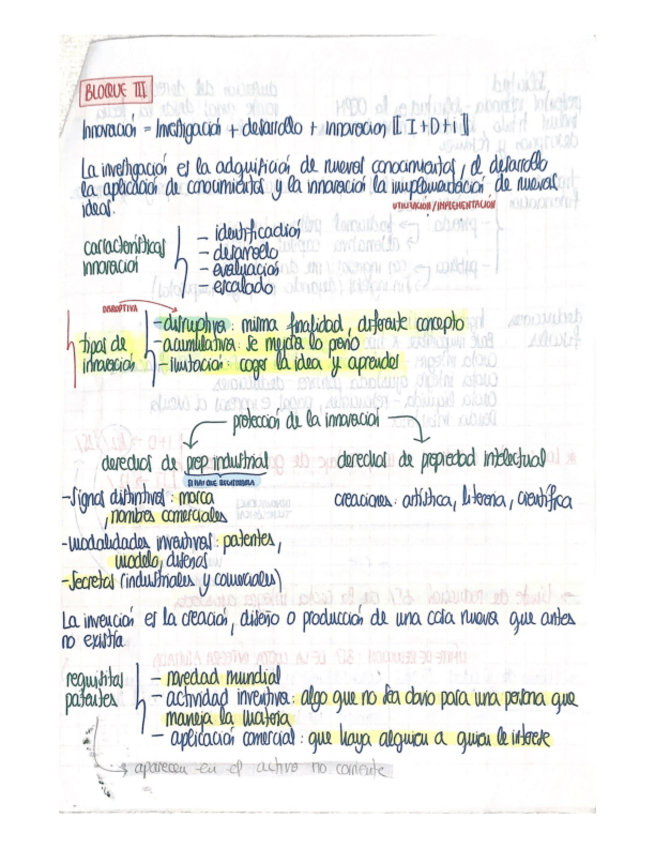 BLOQUE III
Innovación = Investigación + desarrollo + innovación [[ I+D+i ]]
La investigación es la adquisición de nuevos conocimientos, el desarrollo
la aplicación de conocimientos y la innovación la implementación de nuevas
ideas.
UTILIZACIÓN / IMPLEMENTACIÓN
características
innovación
- identificación
- desarrollo
- evaluación
- escalado
DISRUPTIVA
tipos de
innovación
- disruptiva: misma finalidad, diferente concepto
- acumulativa: se mejora lo previo
- imitación: coger la idea y aprender
protección de la innovación
derechos de prop industrial
SI HAY QUE REGISTRARLA
derechos de propiedad intelectual
- Signos distintivos: marca
, nombres comerciales
- modalidades inventivas: patentes,
modelo, diseños
- Secretos (industriales y comerciales)
creaciones: artística, literaria, científica
La invención es la creación, diseño o producción de una cosa nueva que antes
no existía
requisitos
patentes
- novedad mundial
- actividad inventiva: algo que no sea obvio para una persona que
maneja la materia
- aplicación comercial: que haya alguien a quien le interese
aparecen en el activo no corriente